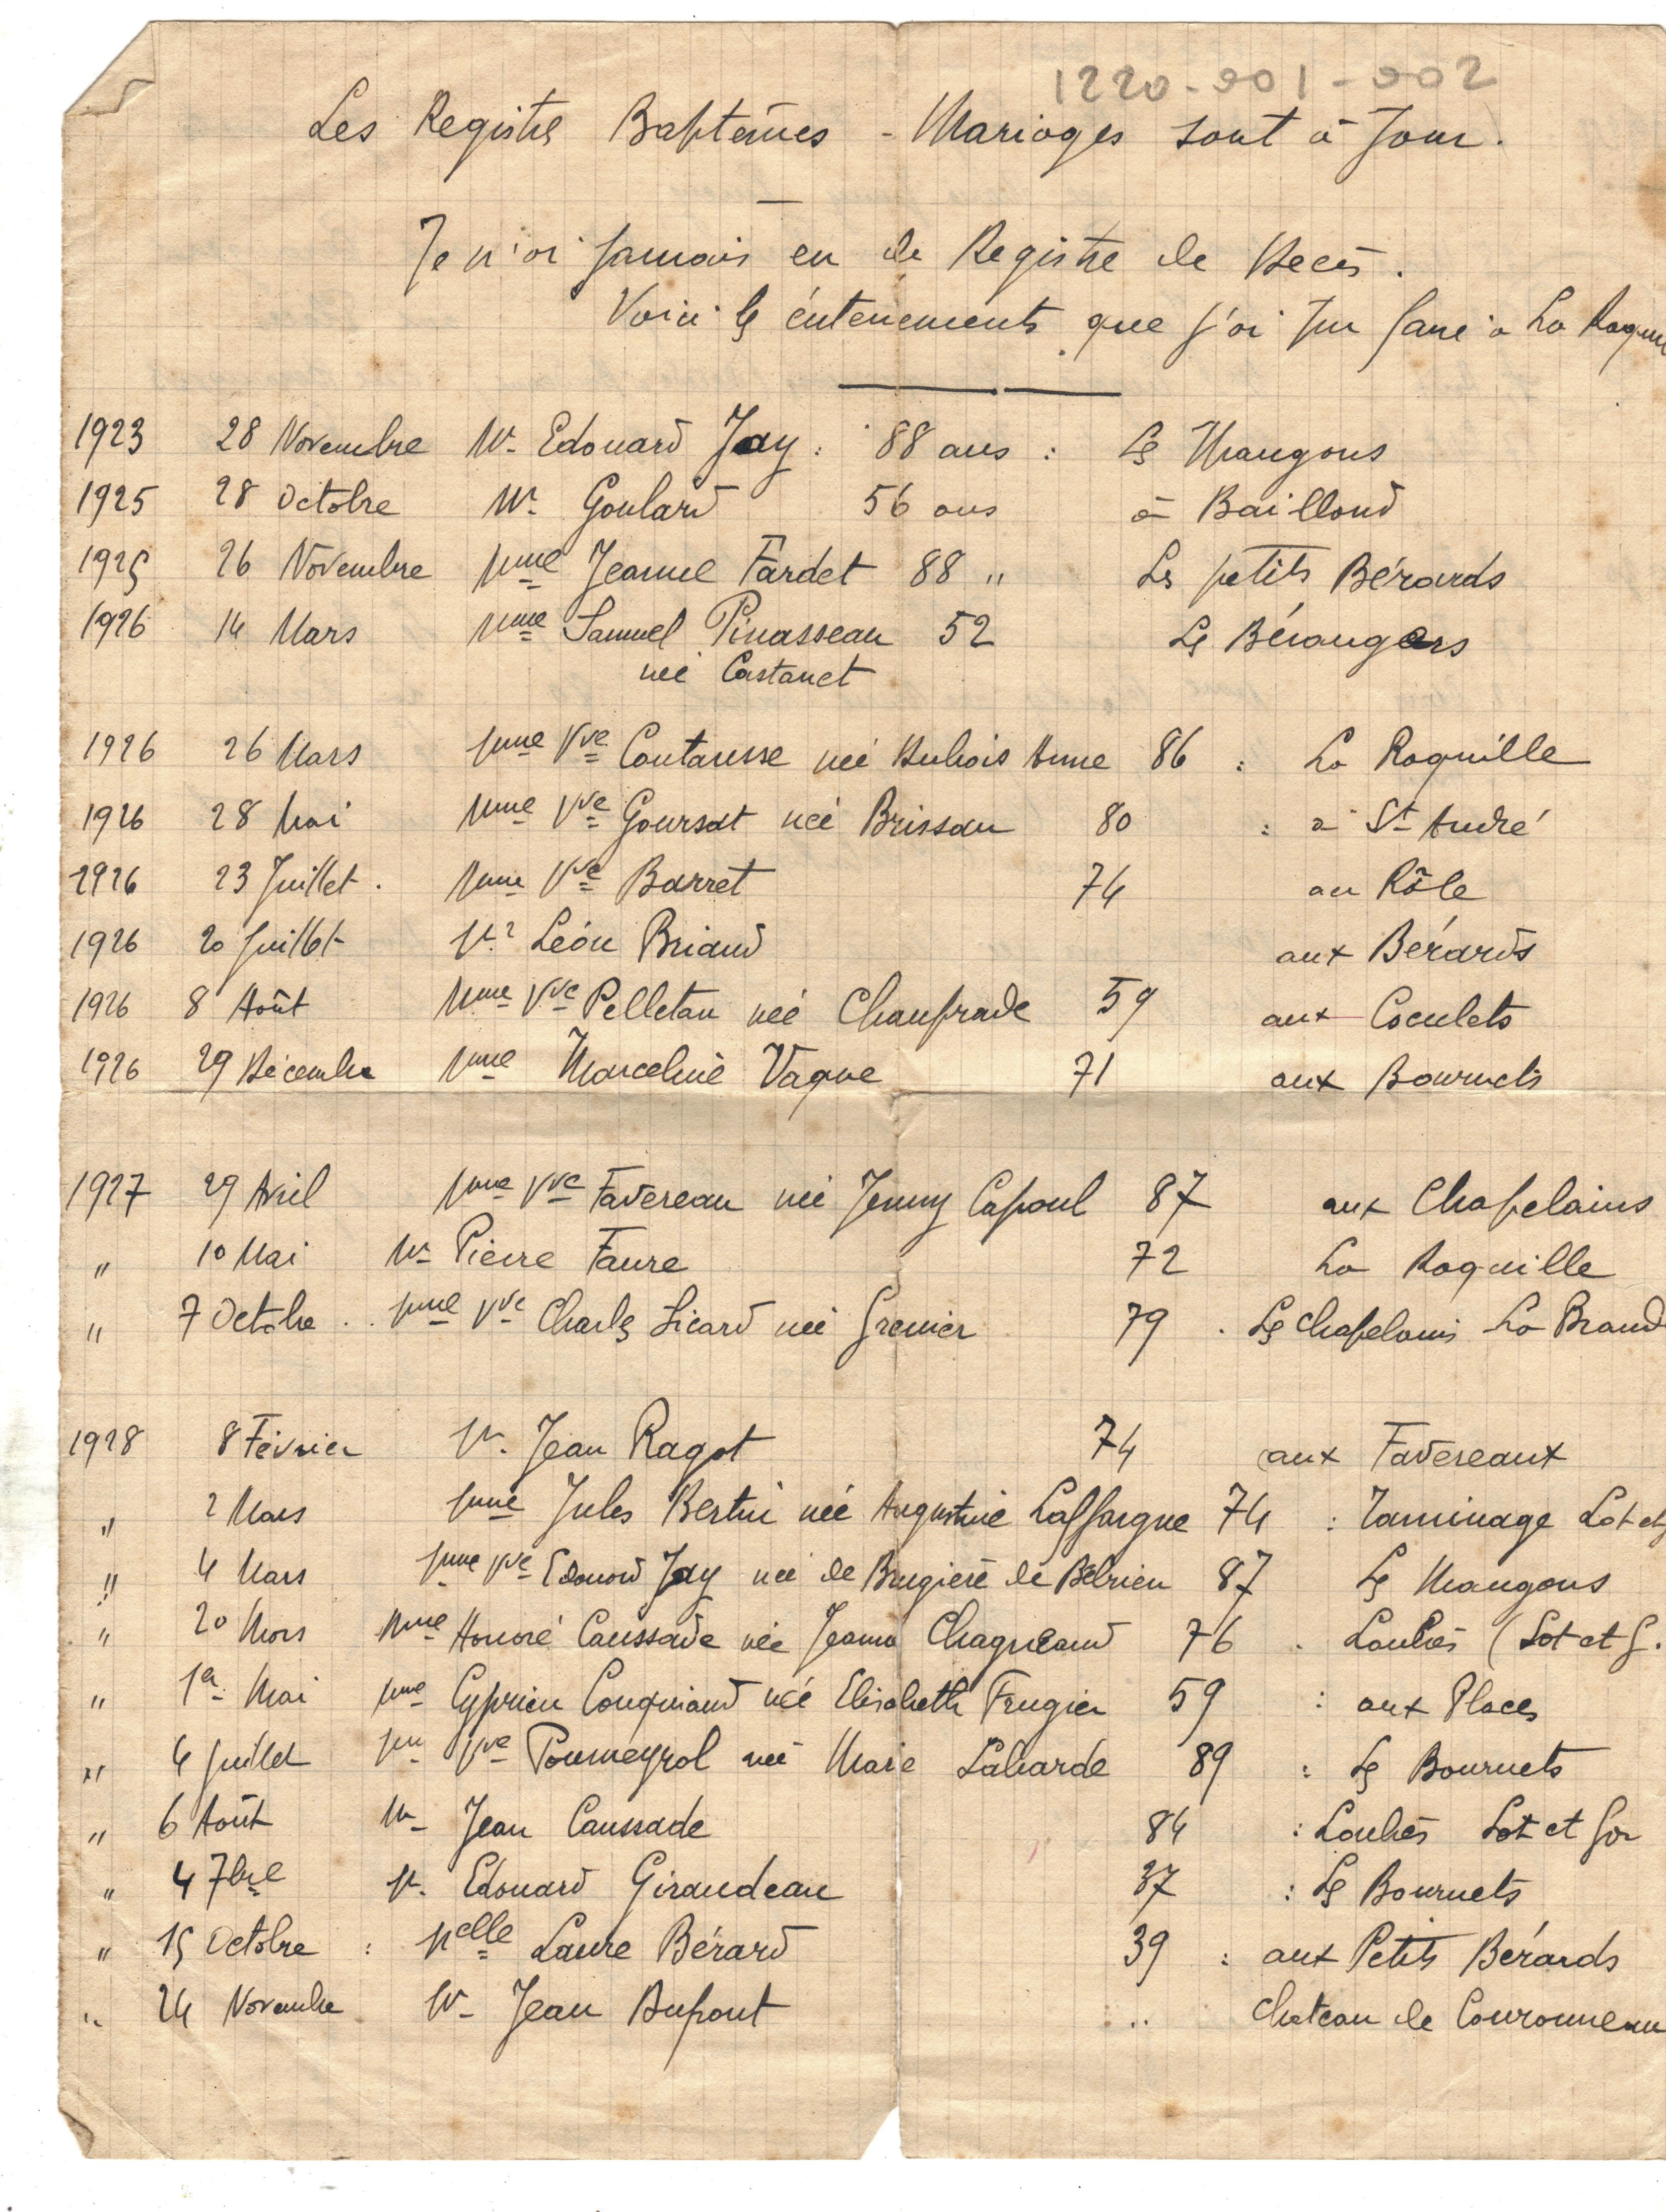 1220-001-002
Les Registres Baptêmes - Mariages sont à Jour.
Je n'ai jamais eu de Registre de Décès.
Voici les enterrements que j'ai pu faire à La Roquille
1923 28 Novembre Mr Edouard Jay : 88 ans : Les Maugons
1925 28 Octobre Mr Goulard 56 ans à Baillond
1925 26 Novembre Mme Jeanne Fardet 88 " Les petits Bérards
1926 14 Mars Mme Samuel Pinasseau 52 Les Bérangers
née Castanet
1926 26 Mars Mme Vve Coutausse née Dubois Anne 86 : La Roquille
1926 28 Mai Mme Vve Goursat née Brisseau 80 : à St André
1926 23 Juillet . Mme Vve Barret 74 au Rôle
1926 20 Juillet Mr Léon Briand aux Bérards
1926 8 Août Mme Vve Pelletan née Chaufrade 59 aux Coculets
1926 29 Décembre Mme Marceline Vague 71 aux Bournets
1927 29 Avril Mme Vve Favereau née Jenny Capoul 87 aux Chapelains
" 10 Mai Mr Pierre Faure 72 La Roquille
" 7 Octobre . . Mme Vve Charles Sicard née Grenier 79 . Les Chapelains La Brand
1928 8 Février Mr Jean Ragot 74 aux Favereaux
" 2 Mars Mme Jules Bertin née Augustine Laffargue 74 : Taminage Lot et g
" 4 Mars Mme Vve Edouard Jay née de Brugière de Bélrieu 87 Les Maugons
" 20 Mars Mme Honoré Caussade née Jeanne Chagneaud 76 . Loubès (Lot et G.
" 1er Mai Mme Cyprien Couqniaud née Elisabeth Frugier 59 : aux Places
" 4 Juillet Mme Vve Poumeyrol née Marie Labarde 89 : Les Bournets
" 6 Août Mr Jean Caussade 84 : Loubès Lot et Gar
" 4 7bre Mr. Edouard Giraudeau 37 : Les Bournets
" 15 Octobre : Melle Laure Bérard 39 : aux Petits Bérards
" 24 Novembre Mr Jean Dupont .. Chateau de Couronneau